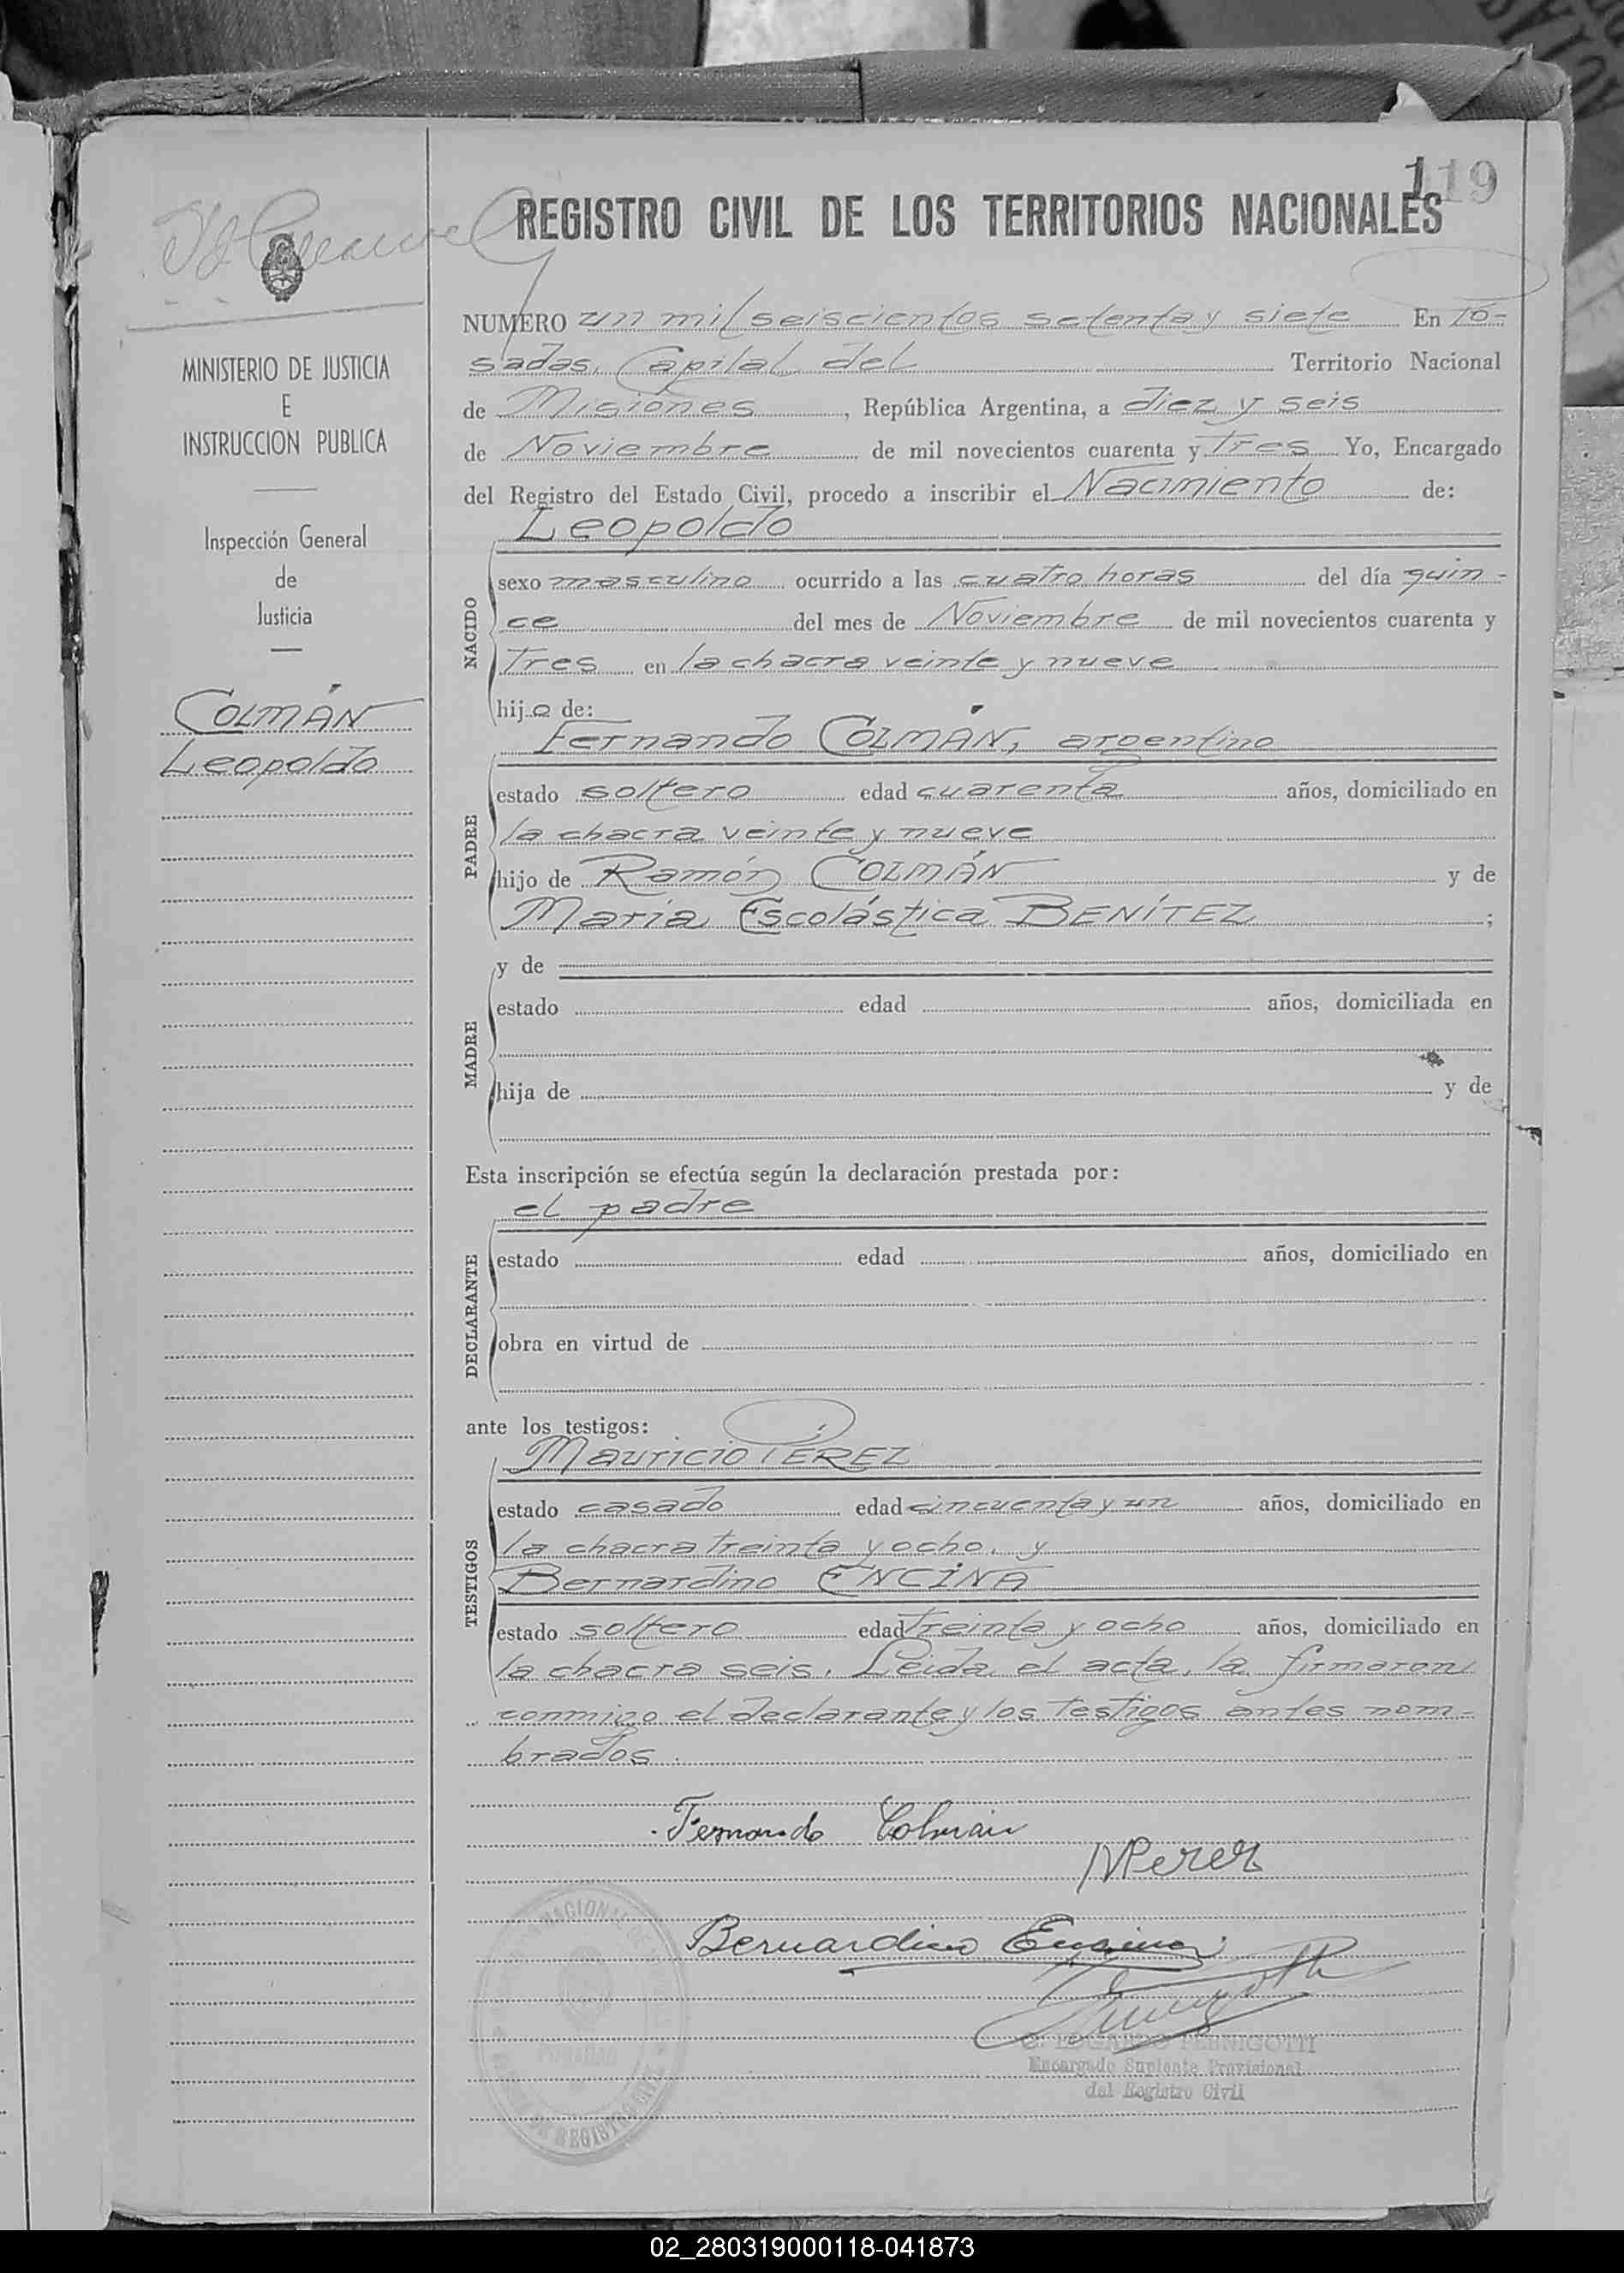 119
REGISTRO CIVIL DE LOS TERRITORIOS NACIONALES
MINISTERIO DE JUSTICIA
E
INSTRUCCION PUBLICA
Inspección General
de
Justicia
COLMÁN
Leopoldo
NUMERO un mil seiscientos setenta y siete En Po-
sadas, Capital del Territorio Nacional
de Misiones, República Argentina, a diez y seis
de Noviembre de mil novecientos cuarenta y tres Yo, Encargado
del Registro del Estado Civil, procedo a inscribir el Nacimiento de:
Leopoldo
NACIDO
sexo masculino ocurrido a las cuatro horas del día quin-
ce del mes de Noviembre de mil novecientos cuarenta y
tres en la chacra veinte y nueve
hijo de:
Fernando COLMÁN, argentino
PADRE
estado soltero edad cuarenta años, domiciliado en
la chacra veinte y nueve
hijo de Ramón COLMÁN y de
María Escolástica BENÍTEZ ;
y de
MADRE
estado edad años, domiciliada en
hija de y de
Esta inscripción se efectúa según la declaración prestada por:
el padre
DECLARANTE
estado edad años, domiciliado en
obra en virtud de
ante los testigos:
Mauricio PÉREZ
TESTIGOS
estado casado edad cincuenta y un años, domiciliado en
la chacra treinta y ocho, y
Bernardino ENCINA
estado soltero edad treinta y ocho años, domiciliado en
la chacra seis. Leída el acta, la firmaron
conmigo el declarante y los testigos antes nom-
brados.
Fernando Colmán
MPerez
Bernardino Encina
PERNIGOTTI
Encargado Suplente Provisional
del Registro Civil
02_280319000118-041873